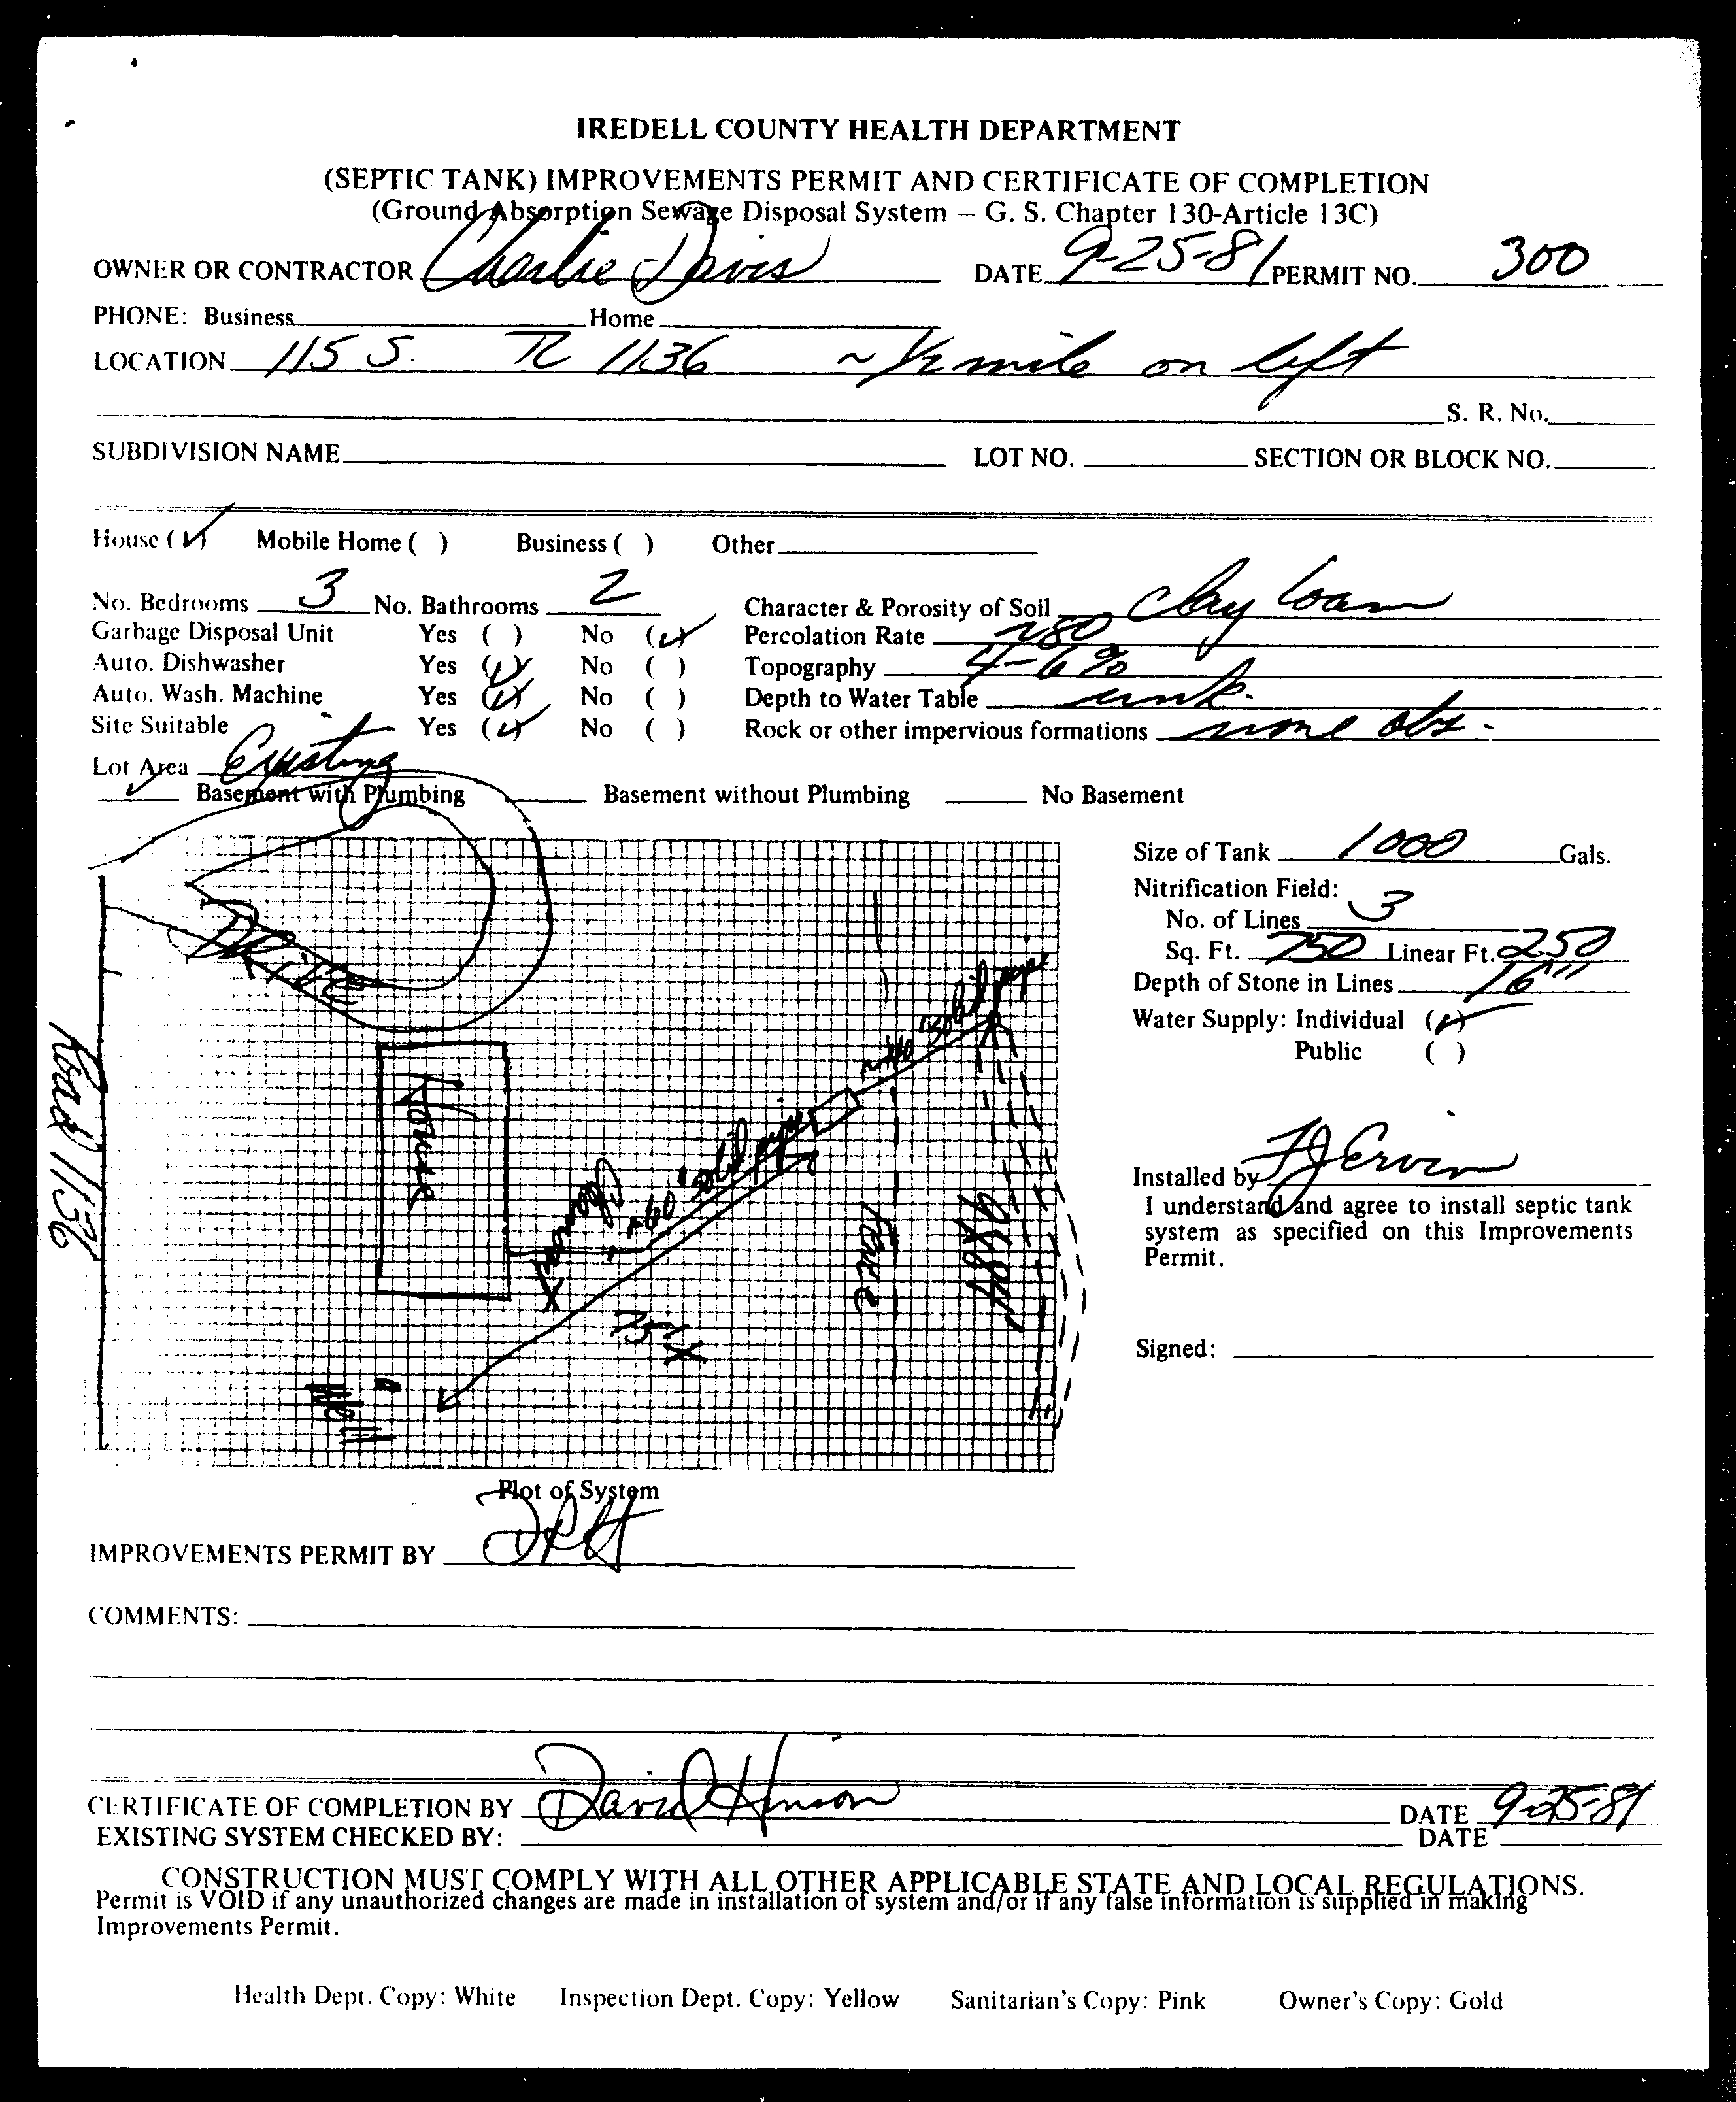 IREDELL COUNTY HEALTH DEPARTMENT
(SEPTIC TANK) IMPROVEMENTS PERMIT AND CERTIFICATE OF COMPLETION
(Ground Absorption Sewage Disposal System – G. S. Chapter 130-Article 13C)
OWNER OR CONTRACTOR Charlie Davis DATE 9-25-81 PERMIT NO. 300
PHONE: Business Home
LOCATION 115 S. TL 1136 ~ 1/2 mile on left
S. R. No.
SUBDIVISION NAME LOT NO. SECTION OR BLOCK NO.
House (✓) Mobile Home ( ) Business ( ) Other
No. Bedrooms 3 No. Bathrooms 2 Character & Porosity of Soil Clay loam
Garbage Disposal Unit Yes ( ) No (✓) Percolation Rate ~80
Auto. Dishwasher Yes (✓) No ( ) Topography 4-6%
Auto. Wash. Machine Yes (✓) No ( ) Depth to Water Table unk.
Site Suitable Yes (✓) No ( ) Rock or other impervious formations none obs.
Lot Area Existing
✓ Basement with Plumbing Basement without Plumbing No Basement
Size of Tank 1000 Gals.
Nitrification Field:
No. of Lines 3
Sq. Ft. 750 Linear Ft. 250
Depth of Stone in Lines 16"
Water Supply: Individual (✓)
Public ( )
Drive
House
Road 1136
~40' solid pipe
~60' solid pipe
Fence
75'
Well
Installed by FJ Ervin
I understand and agree to install septic tank
system as specified on this Improvements
Permit.
Signed:
Plot of System
IMPROVEMENTS PERMIT BY DPH
COMMENTS:
CERTIFICATE OF COMPLETION BY David Hinson DATE 9-25-81
EXISTING SYSTEM CHECKED BY: DATE
CONSTRUCTION MUST COMPLY WITH ALL OTHER APPLICABLE STATE AND LOCAL REGULATIONS.
Permit is VOID if any unauthorized changes are made in installation of system and/or if any false information is supplied in making
Improvements Permit.
Health Dept. Copy: White Inspection Dept. Copy: Yellow Sanitarian's Copy: Pink Owner's Copy: Gold